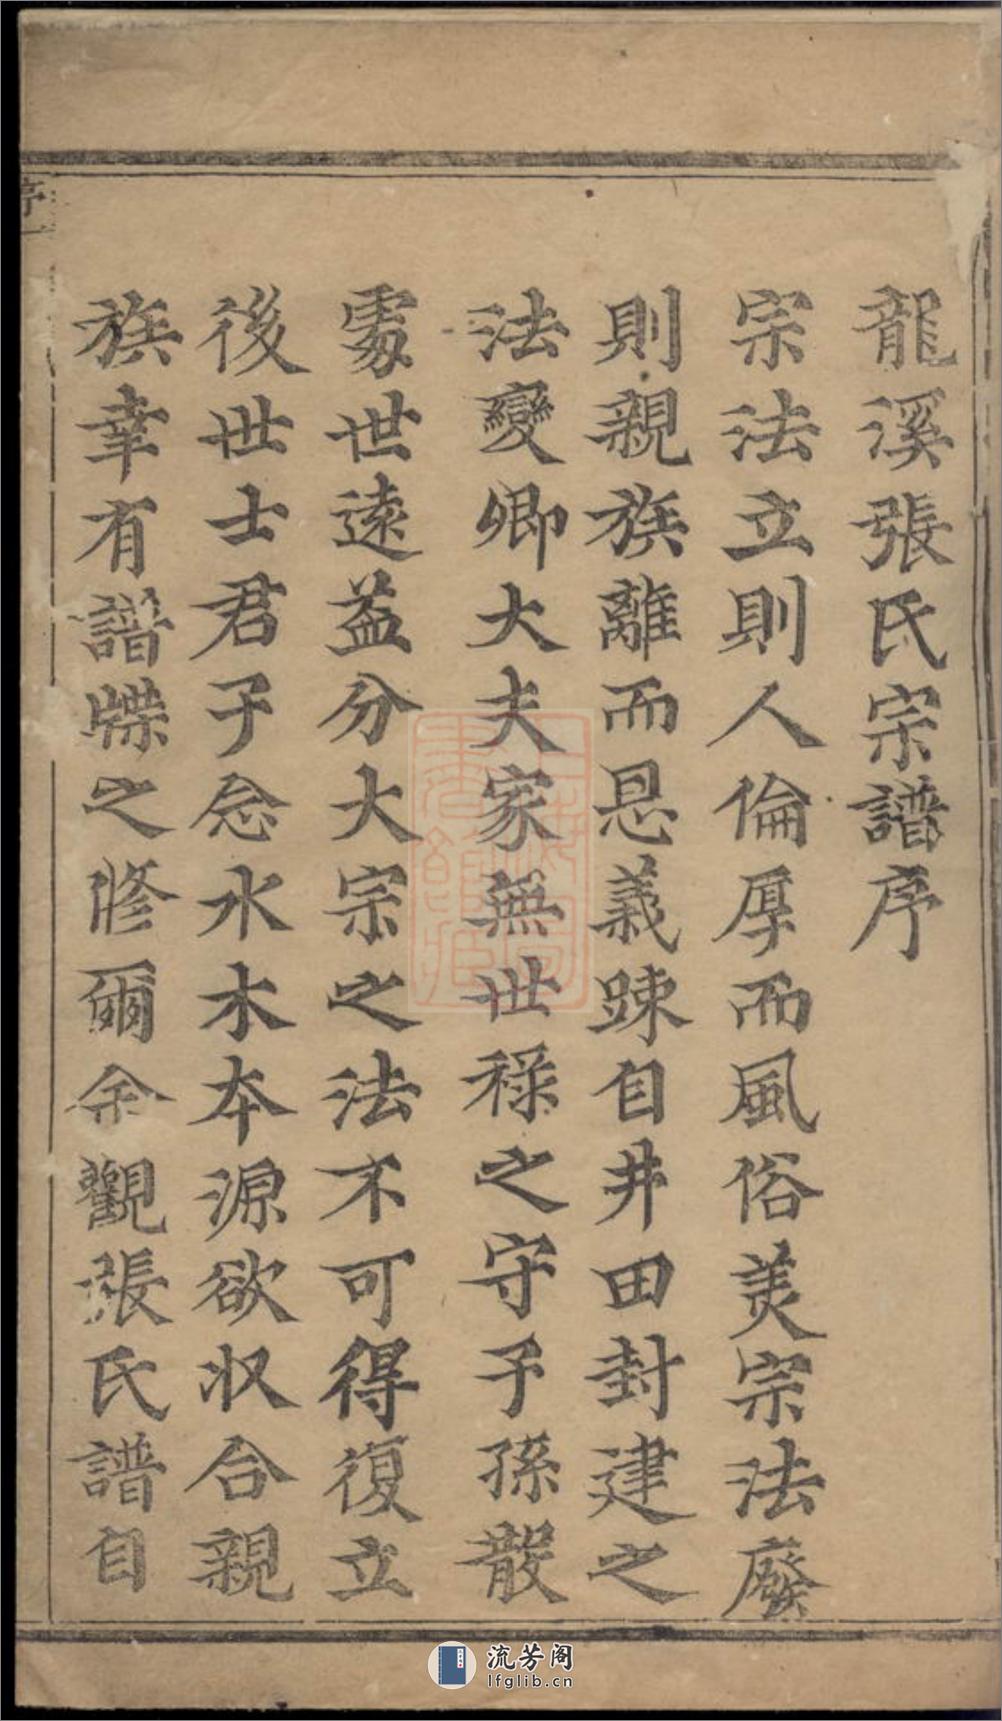 龍溪張氏宗譜序
宗法立則人倫厚而風俗美宗法廢
則親族離而恩義踈自井田封建之
法變卿大夫家無世祿之守子孫散
處世遠益分大宗之法不可得復立
後世士君子念水木本源欲収合親
族幸有譜牒之修爾余觀張氏譜自
序一
流芳阁
lfglib.cn